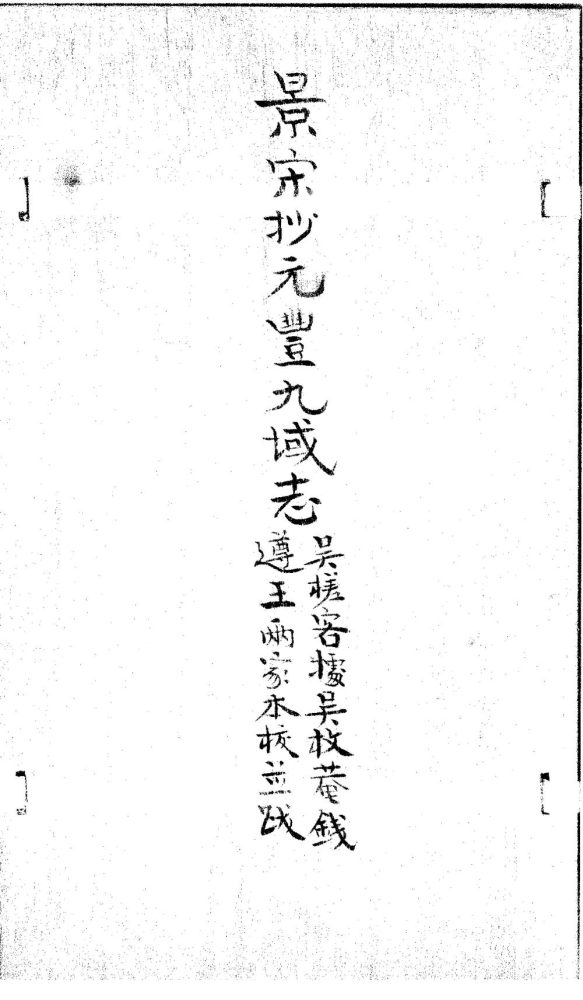 景宋抄元豐九域志
吳槎客據吳枚菴錢
遵王兩家本校並跋